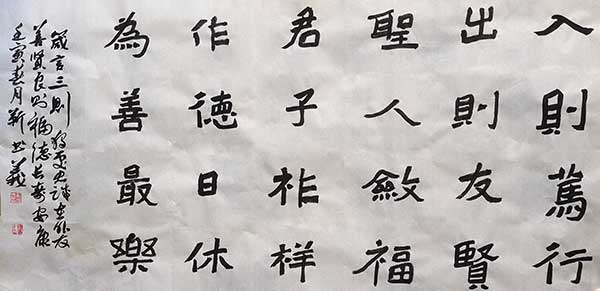 入則篤行
出則友賢
聖人斂福
君子祚祥
作德日休
為善最樂
箴言三則
善賢良則福德長壽安康
壬寅春月靳